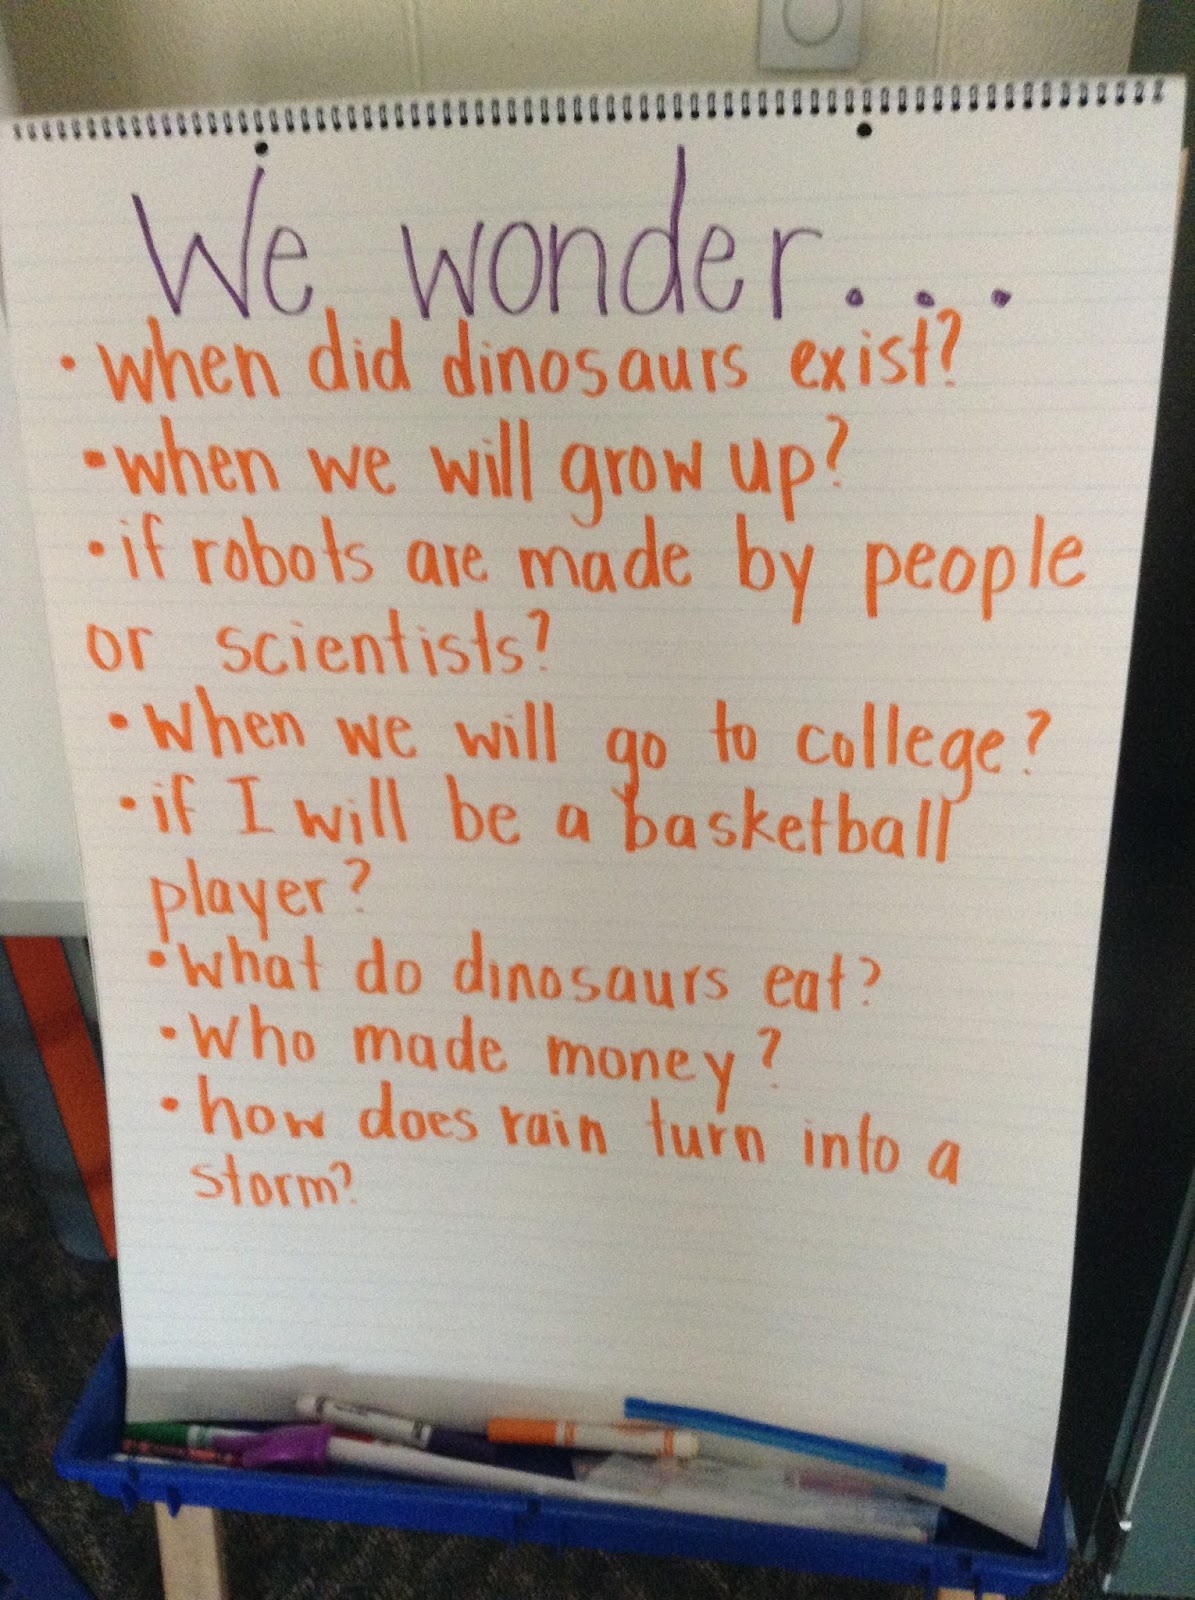 We wonder...
• when did dinosaurs exist?
• when we will grow up?
• if robots are made by people
or scientists?
• when we will go to college?
• if I will be a basketball
player?
• what do dinosaurs eat?
• who made money?
• how does rain turn into a
storm?